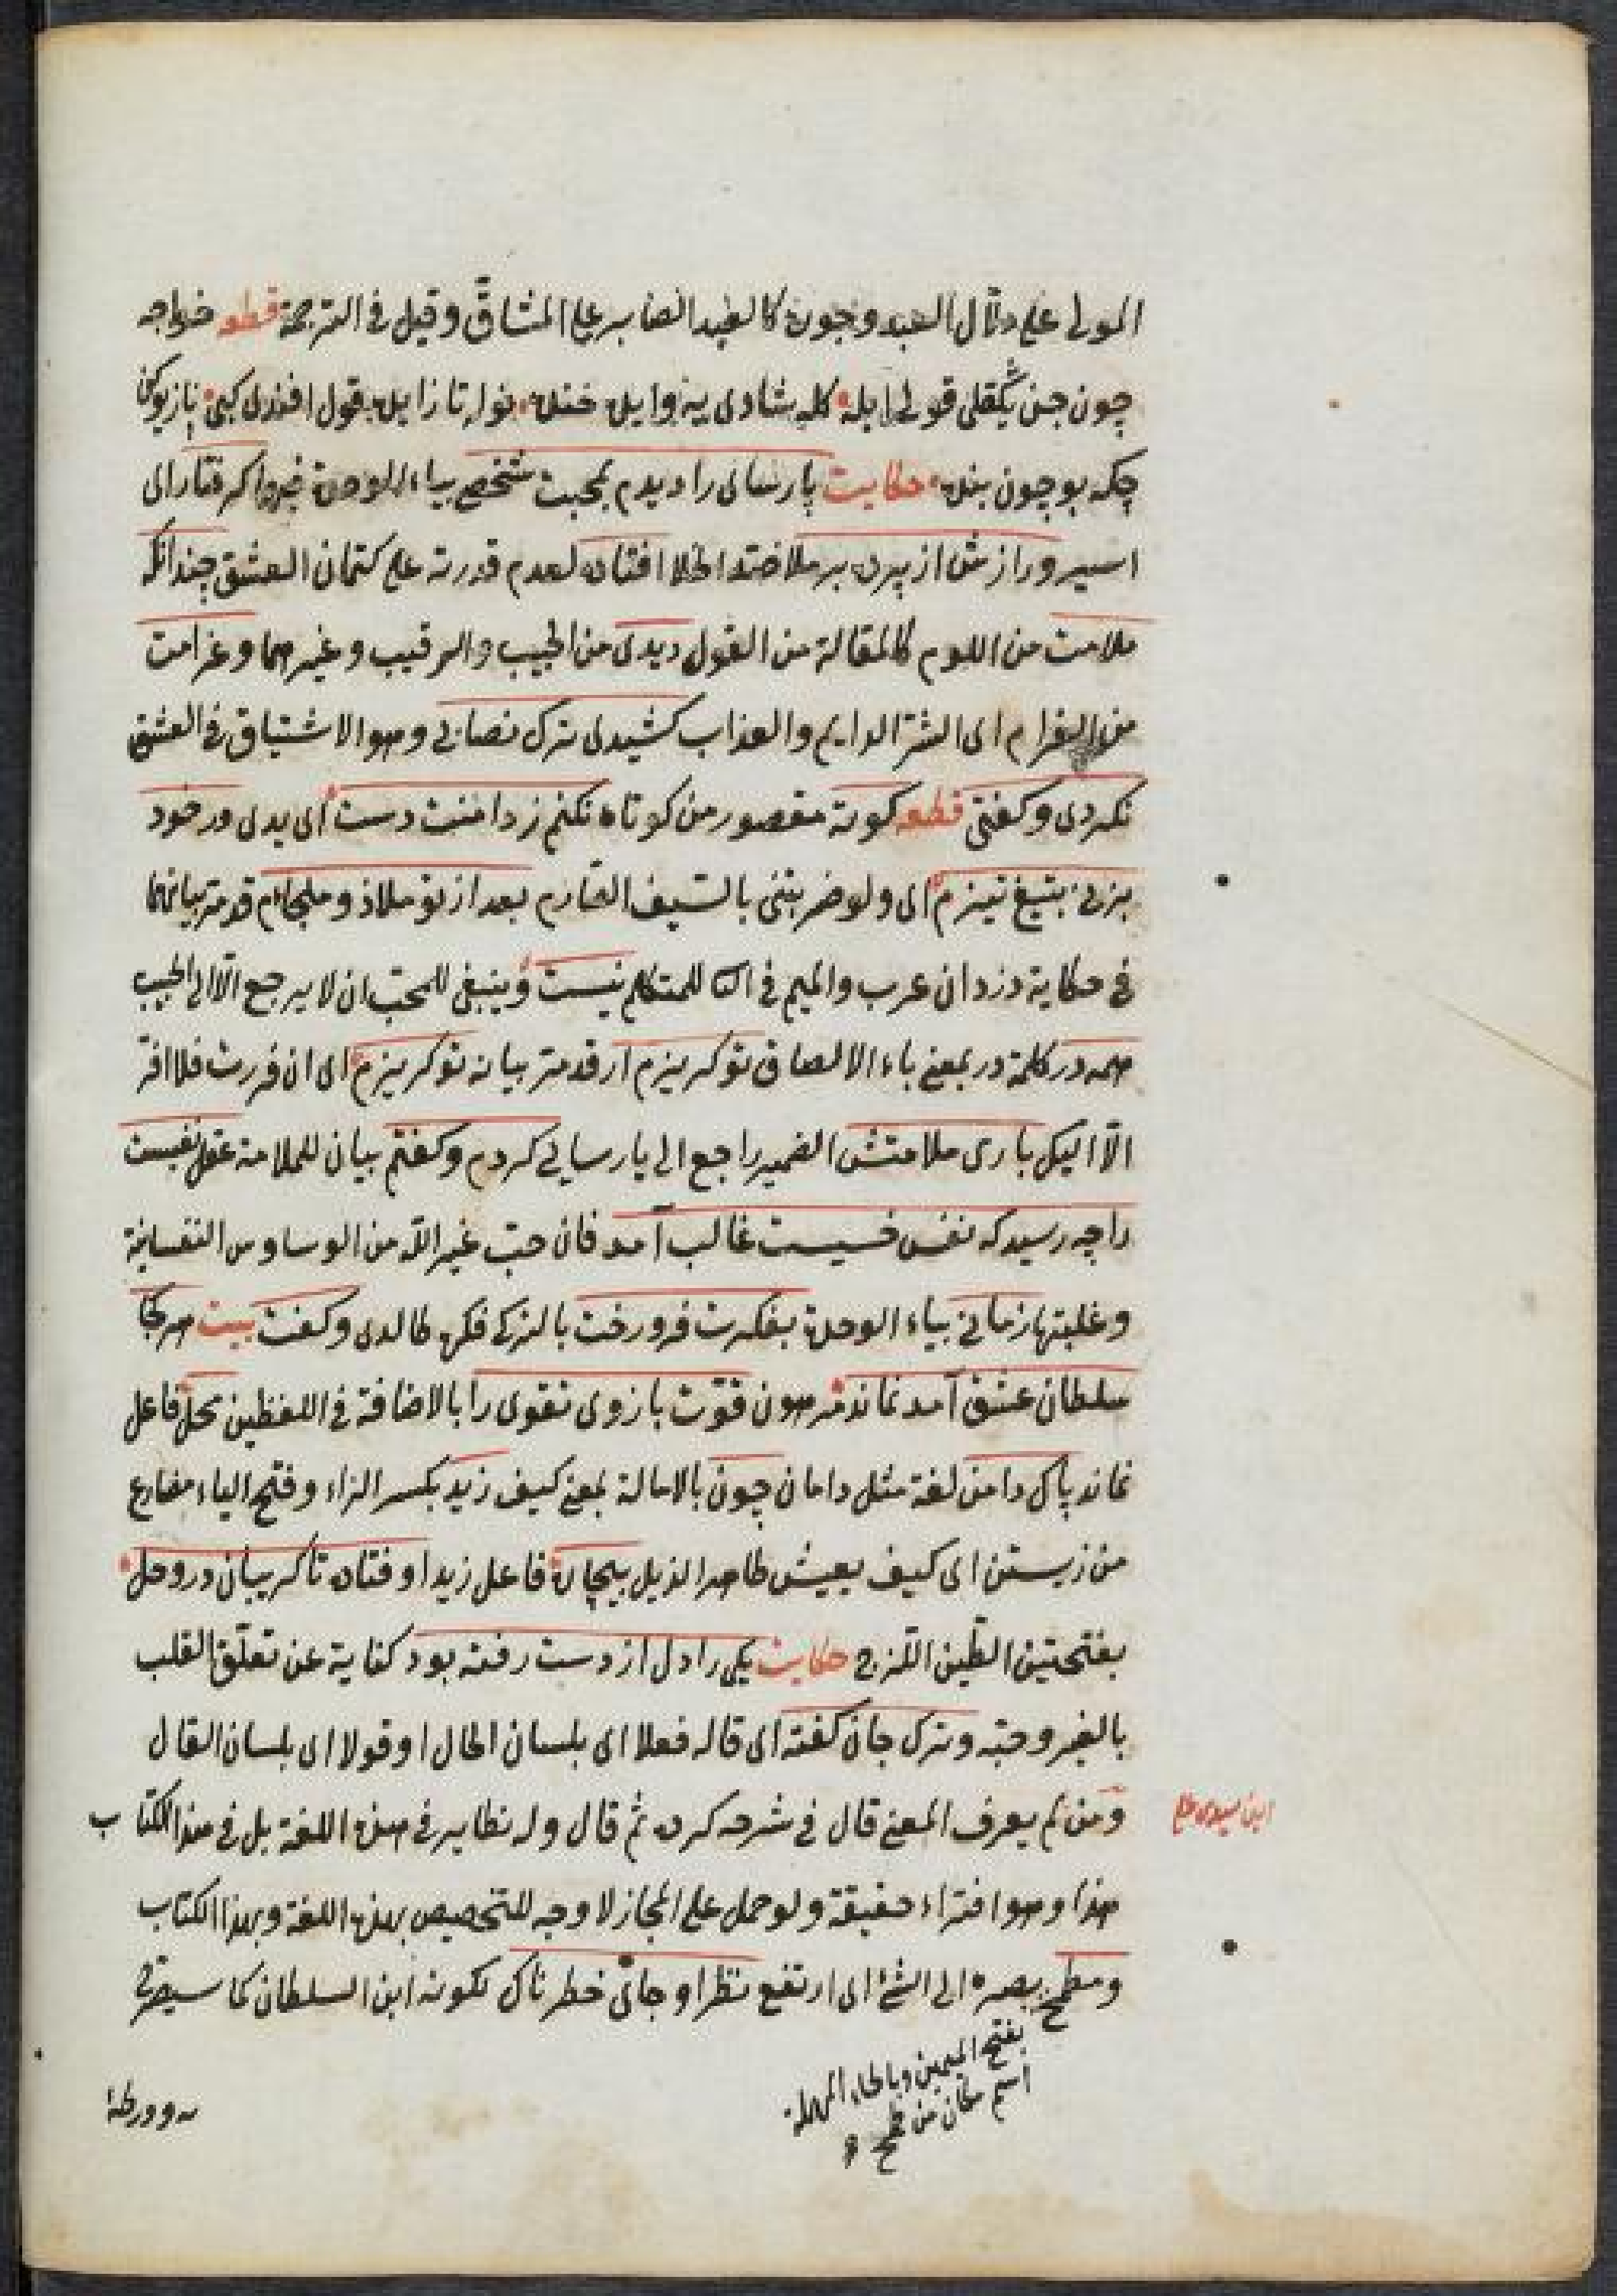 المولى على دلال العبد وجون كالعبد الصابر على المشاق وقيل فى الترجمة قطعه خواجه
چون جن يكقلى قولى ايله كله شادى يه وايله خنده نوله تا زايله قول افندى كبى بازيوكن
چكه بو چون بنده حكايت پارسائى را ديدم بمحبت شخصى بياء الوحدة گرفتار اى
اسير ورازش از پرده برملا ضد الخلا افتاده لعدم قدرته على كتمان العشق چندانكه
ملامت من اللوم كالمقالة من القول ديدى من الحبيب والرقيب وغيرهما وغرامت
من الغرام اى الشر الدايم والعذاب كشيدى ترك تصابى وهو الاشتياق فى العشق
نكردى وكفتى قطعه كوته مقصور من كوتاه نكنم ز دامنت دست اى يدى ور خود
بزنى بتيغ تيزم اى ولو ضربتنى بالسيف الصارم بعد از تو ملاذ وملجاام قد مر بيانهما
فى حكاية دزدان عرب والميم فى ام للمتكلم نيست وينبغى للمحب ان لا يرجع الا الى الحبيب
هم در كلمة در بمعنى باء الالصاق تو كريزم ار قد مر بيانه تو كريزم اى ان فررت فلا افر
الا اليك بارى ملامتش الضمير راجع الى پارسايى كردم وكفتم بيان للملامة عقل نفيست
را چه رسيد كه نفس خسيست غالب آمد فان حب غير الله من الوساوس النفسانية
وغلبتها زمانى بياء الوحدة بفكرت فرو رفت بالتركى فكره طالدى وكفت بيت هر كجا
سلطان عشق آمد نماند هون قوت بازوى تقوى را بالاضافة فى اللفظين محل فاعل
نماند پاك دامن لغة مثل دامان چون بالامالة بمعنى كيف زيد بكسر الزاء وفتح الياء مضارع
من زيستن اى كيف يعيش طاهر الذيل بيچاره فاعل زيد او فتاده تا كريبان در وحل
بفتحتين الطين اللزج حكايت يكى را دل از دست رفته بود كناية عن تعلق القلب
بالغير وحبه وترك جان كفته اى قاله فعلا اى بلسان الحال او قولا اى بلسان القال
ومن لم يعرف المعنى قال فى شرحه كرده ثم قال وله نظاير فى هذه اللغة بل فى هذا الكتاب
ابن سيدى على
هذا وهو افتراء حقيقة ولو حمل على المجاز لا وجه للتخصيص بهذه اللغة وبهذا الكتاب
ومطمح بصره الى الشئ اى ارتفع نظرا و جائى خطرناك لكونه ابن السلطان كما سيصرح
بفتح الميمين وبالحاء المهملة
اسم مكان من طمح
به وورطه